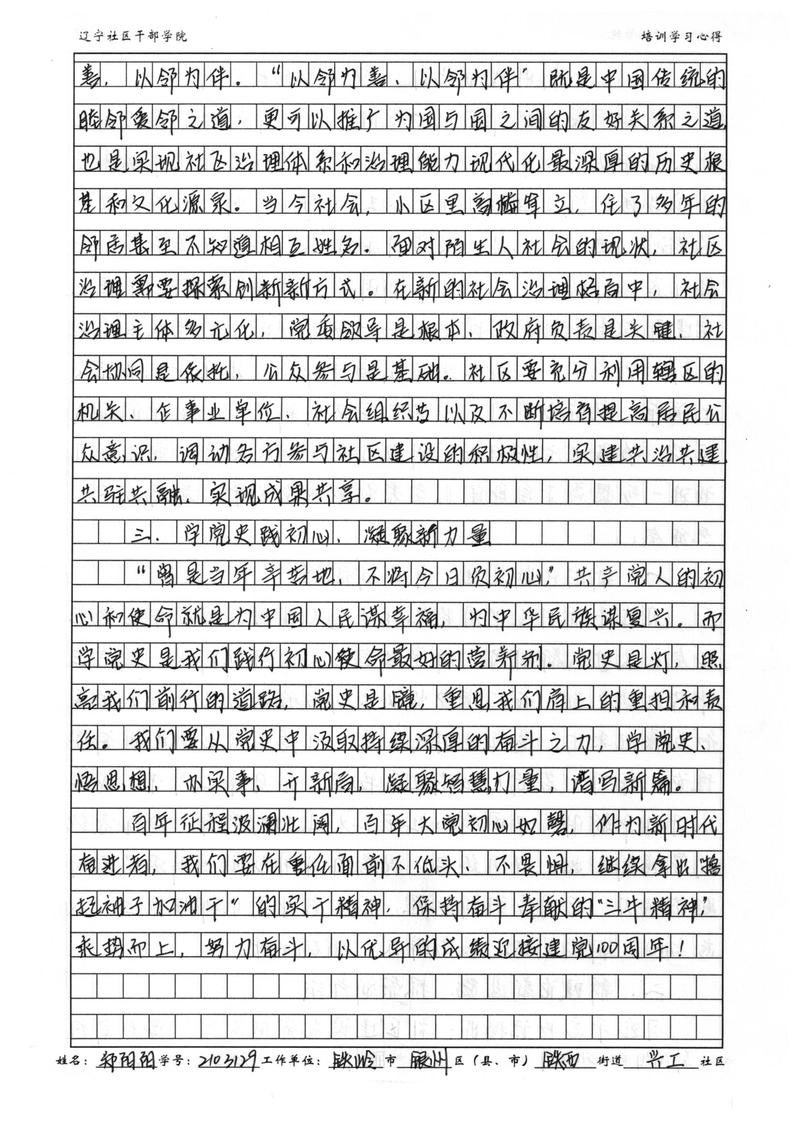 辽宁社区干部学院 培训学习心得
善，以邻为伴。“以邻为善、以邻为伴”既是中国传统的
睦邻爱邻之道，更可以推广为国与国之间的友好关系之道
也是实现社区治理体系和治理能力现代化最深厚的历史根
基和文化源泉。当今社会，小区里高楼耸立，住了多年的
邻居甚至不知道相互姓名。面对陌生人社会的现状，社区
治理需要探索创新新方式。在新的社会治理格局中，社会
治理主体多元化，党委领导是根本、政府负责是关键、社
会协同是依托，公众参与是基础。社区要充分利用辖区的
机关、企事业单位、社会组织等以及不断培育提高居民公
众意识，调动各方参与社区建设的积极性，实建共治共建
共驻共融，实现成果共享。
三、学党史践初心，凝聚新力量
“曾是当年辛苦地，不将今日负初心”，共产党人的初
心和使命就是为中国人民谋幸福，为中华民族谋复兴。而
学党史是我们践行初心使命最好的营养剂。党史是灯，照
亮我们前行的道路，党史是镜，重思我们肩上的重担和责
任。我们要从党史中汲取持续深厚的奋斗之力，学党史、
悟思想、办实事、开新局，凝聚智慧力量，谱写新篇。
百年征程波澜壮阔，百年大党初心如磐，作为新时代
奋进者，我们要在重任面前不低头、不畏惧，继续拿出“撸
起袖子加油干”的实干精神，保持奋斗奉献的“三牛精神”，
乘势而上，努力奋斗，以优异的成绩迎接建党100周年！
姓名：郑阳阳 学号：2103129 工作单位：铁岭 市 银州 区（县、市） 铁西 街道 兴工 社区